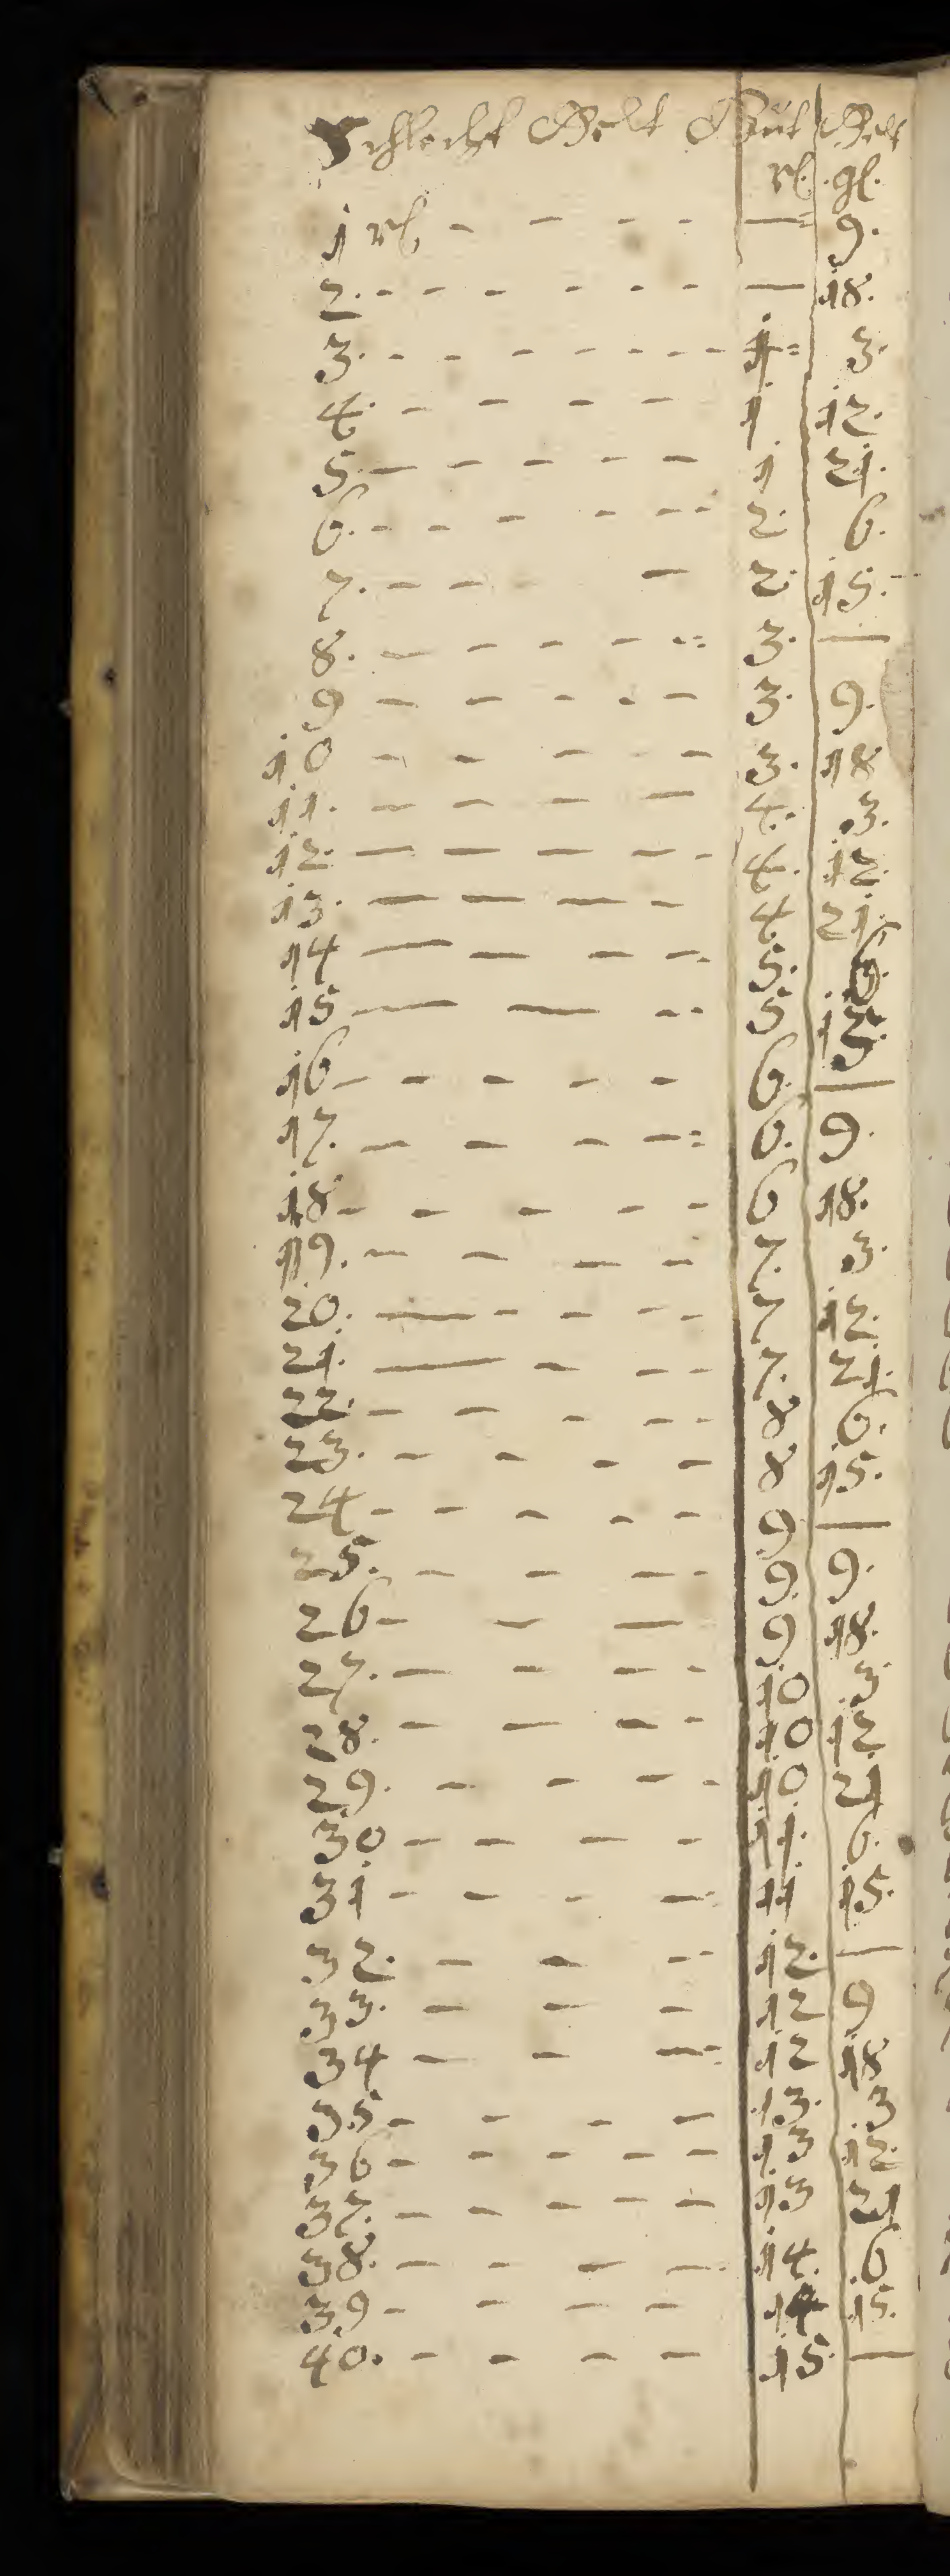 Schlecht Gelt Gut Gelt
rl. gl.
1 rl - - - - — 9.
2. - - - - - - — 18.
3. - - - - - - - - 1 = 3.
4. - - - - 1 12.
5. - - - - - 1 21.
6. - - - - - - 2. 6.
7. - - - 2. 15.
8. - - - - - = 3. —
9 - - - - - 3. 9.
10 - - - - - 3. 18
11. - - - - 4. 3.
12. - - - - - 4. 12.
13. - - - - 4 21.
14 - - - - - 5. 6.
15 - - - - 5 15.
16 - - - - - 6. —
17. - - - - = 6. 9.
18 - - - - - - 6 18.
19. - - - - 7. 3.
20. - - - - - 7 12.
21. - - - - 7. 21.
22. - - - - - 8 6.
23. - - - - 8 15.
24 - - - - - 9 —
25. - - - - 9. 9.
26 - - - 9 18.
27. - - - - 10 3
28. - - - - 10 12
29. - - - - 10 21
30 - - - - 11. 6.
31 - - - - 11 15.
32. - - - - 12. —
33. - - - 12 9
34 - - - = 12 18
35 - - - - 13. 3
36 - - - - - 13 12.
37. - - - - - 13 21
38. - - - - 14. 6
39 - - - - 14 15.
40. - - - - 15. —